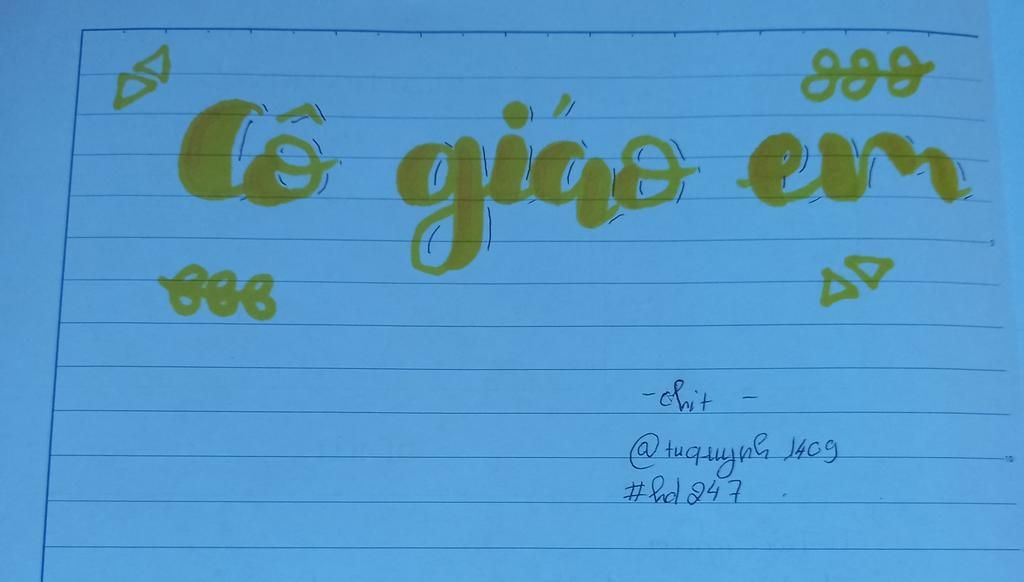 Cô giáo em
- chit -
@tuquynh 1409
#hd247
5
10